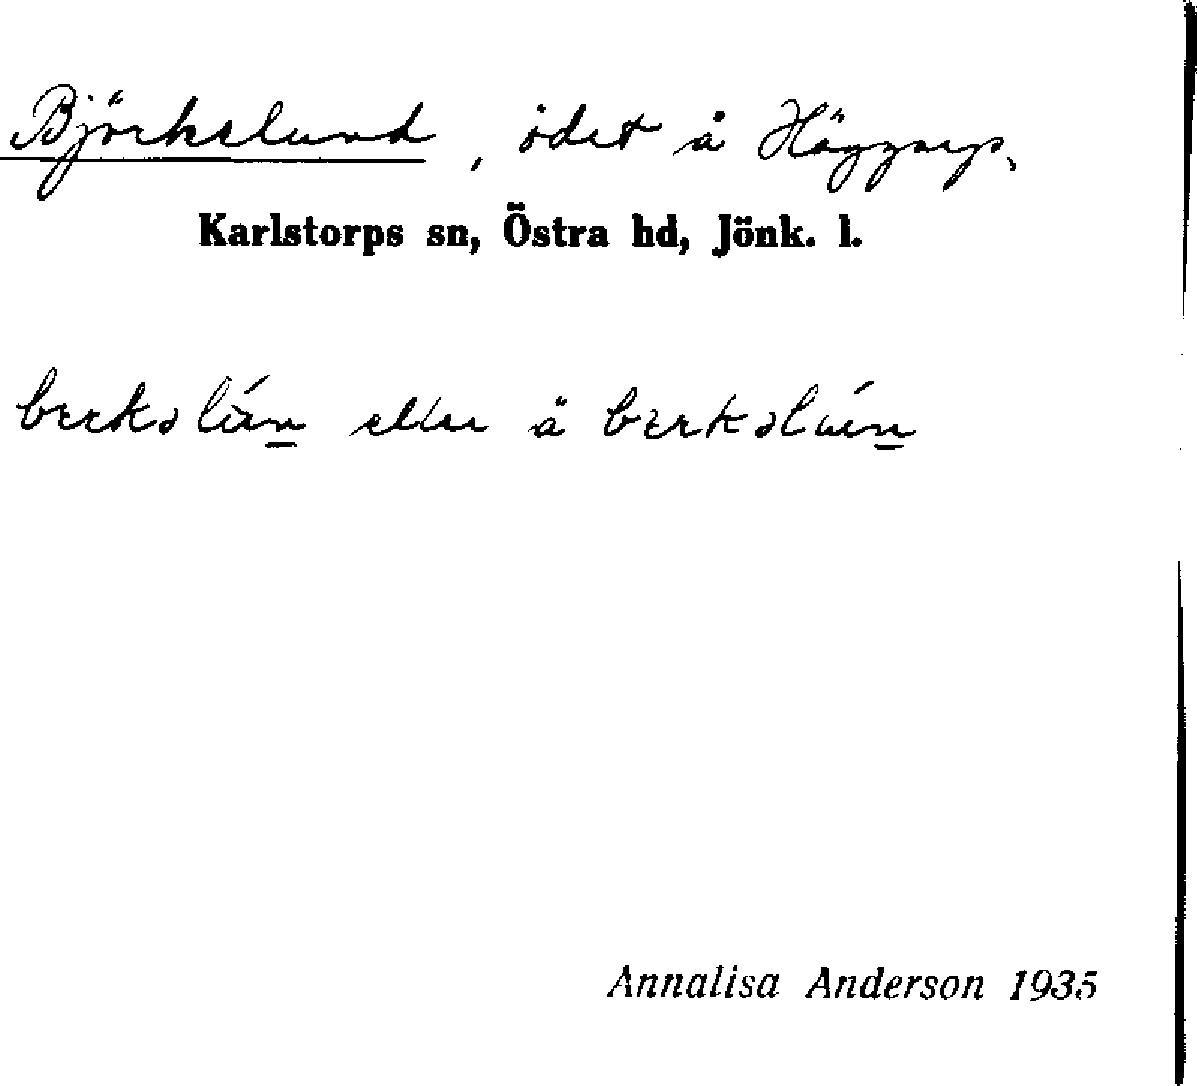 Björkslund, ödet å Häggarp.
Karlstorps sn, Östra hd, Jönk. l.
eller å
Annalisa Anderson 1935